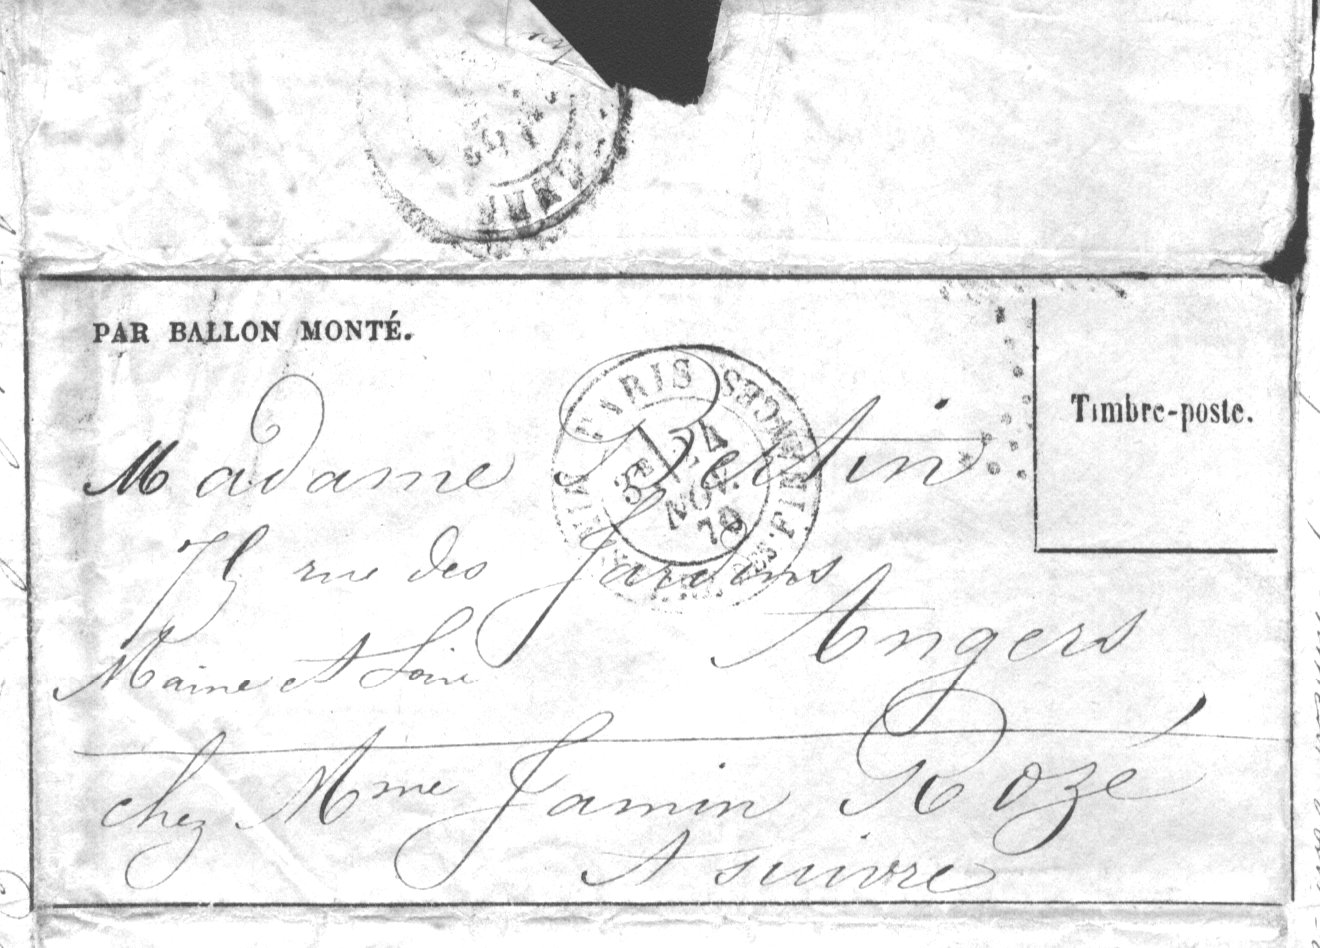 PAR BALLON MONTÉ.
Timbre-poste.
PARIS
3E 24
NOV.
70
Madame Bertin
rue des Jardins
Angers
Maine et Loire
chez Mme Jamin Rozé
A suivre